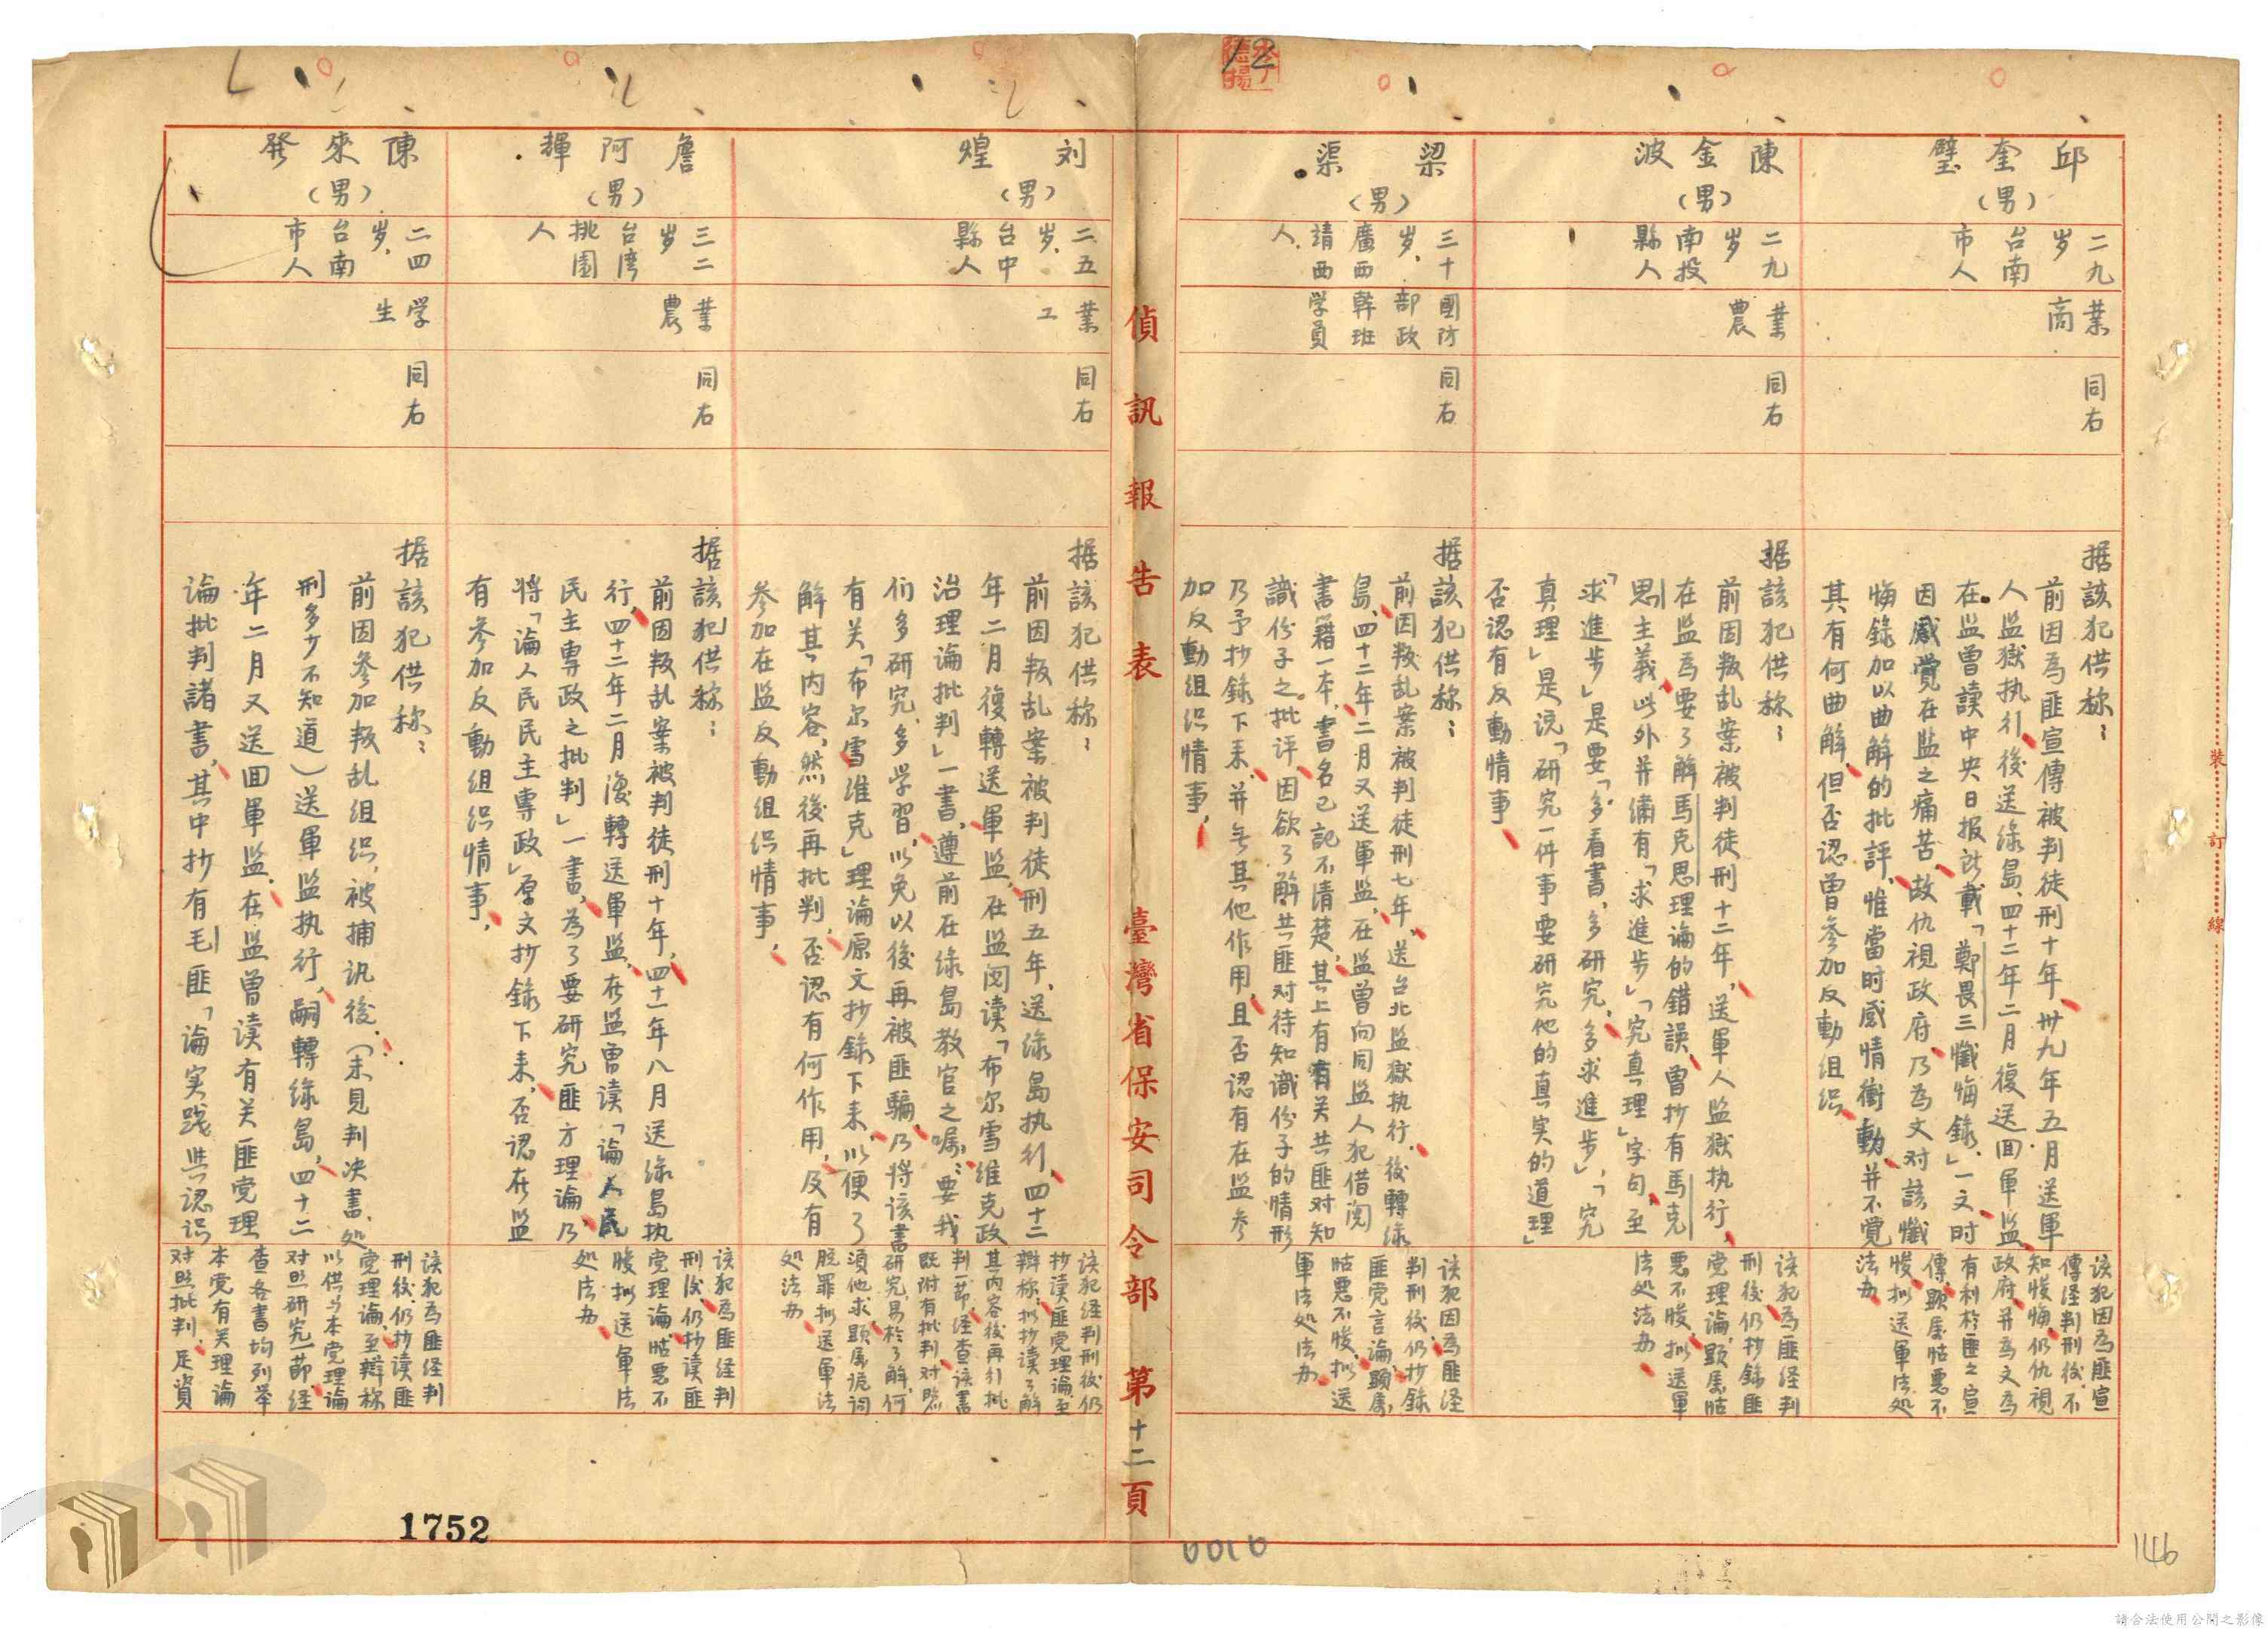 邱奎璧
（男）
二九
岁
台南
市人
業
商
同右
据該犯供称：
前因為匪宣傳被判徒刑十年、卅九年五月送軍
人監獄执行、後送綠島、四十二年二月復送回軍監、
在監曾讀中央日报所載「鄭畏三懺悔錄」一文、时
因感覺在監之痛苦、故仇視政府、乃為文对該懺
悔錄加以曲解的批評、惟當时感情衝動、并不覺
其有何曲解、但否認曾參加反動组织、
该犯因為匪宣
傳经判刑後、不
知悛悔、仍仇視
政府、并為文為
有利於匪之宣
傳、顯屬怙惡不
悛、拟送軍法処
法办、
陳金波
（男）
二九
岁
南投
縣人
業
農
同右
据該犯供称：
前因叛乱案被判徒刑十二年、送軍人監獄执行、
在監為要了解馬克思理論的錯誤、曾抄有馬克
思主義、此外并備有「求進步」「究真理」字句、至
「求進步」是要「多看書、多研究、多求進步」、「究
真理」是说「研究一件事要研究他的真实的道理」
否認有反動情事、
该犯為匪经判
刑後、仍抄錄匪
党理論、顯屬怙
惡不悛、拟送軍
法処法办、
梁渠
（男）
三十
岁、
廣西
靖西
人、
國防
部政
幹班
学員
同右
据該犯供称：
前因叛乱案被判徒刑七年、送台北監獄执行、後轉綠
島、四十二年二月又送軍監、在監曾向同監人犯借閱
書籍一本、書名已記不清楚、其上有有关共匪对知
識份子之批评、因欲了解共匪对待知識份子的情形
乃予抄錄下来、并无其他作用、且否認有在監參
加反動组织情事、
该犯因為匪经
判刑後、仍抄錄
匪党言論、顯屬
怙惡不悛、拟送
軍法処法办
偵訊報告表　臺灣省保安司令部　第十二頁
刘煌
（男）
二五
岁、
台中
縣人
業
工
同右
据該犯供称：
前因叛乱案被判徒刑五年、送綠島执行、四十二
年二月復轉送軍監、在監閱读「布尔雪維克政
治理論批判」一書、遵前在綠島教官之囑：要我
们多研究、多学習、以免以後再被匪騙、乃将该書
有关「布尔雪維克」理論原文抄錄下来、以便了
解其内容、然後再批判、否認有何作用、及有
參加在監反動组织情事、
该犯经判刑後仍
抄读匪党理論、至
辯称：拟抄读了解
其内容後再引批
判一節、经查该書
既附有批判对照
研究、易於了解、何
須他求、顯屬诡词
脱罪、拟送軍法
処法办、
詹阿輝
（男）
三二
岁
台湾
桃園
人
業
農
同右
据該犯供称：
前因叛乱案被判徒刑十年、四十一年八月送綠島执
行、四十二年二月後轉送軍監、在监曾读「論人民
民主專政之批判」一書、為了要研究匪方理論、乃
将「論人民民主專政」原文抄錄下来、否認在监
有參加反動组织情事、
该犯為匪经判
刑後、仍抄读匪
党理論、怙惡不
悛、拟送軍法
処法办、
陳來發
（男）
二四
岁、
台南
市人
学
生
同右
据該犯供称：
前因參加叛乱组织、被捕讯後、（未見判决書、処
刑多少不知道）送軍监执行、嗣轉綠島、四十二
年二月又送回軍监、在监曾读有关匪党理
論批判諸書、其中抄有毛匪「論实践與認识
该犯為匪经判
刑後、仍抄读匪
党理論、至辯称
以供与本党理論
对照研究一節、经
查各書均列举
本党有关理論
对照批判、足資
12
1752
0016
146
裝
訂
線
請合法使用公開之影像